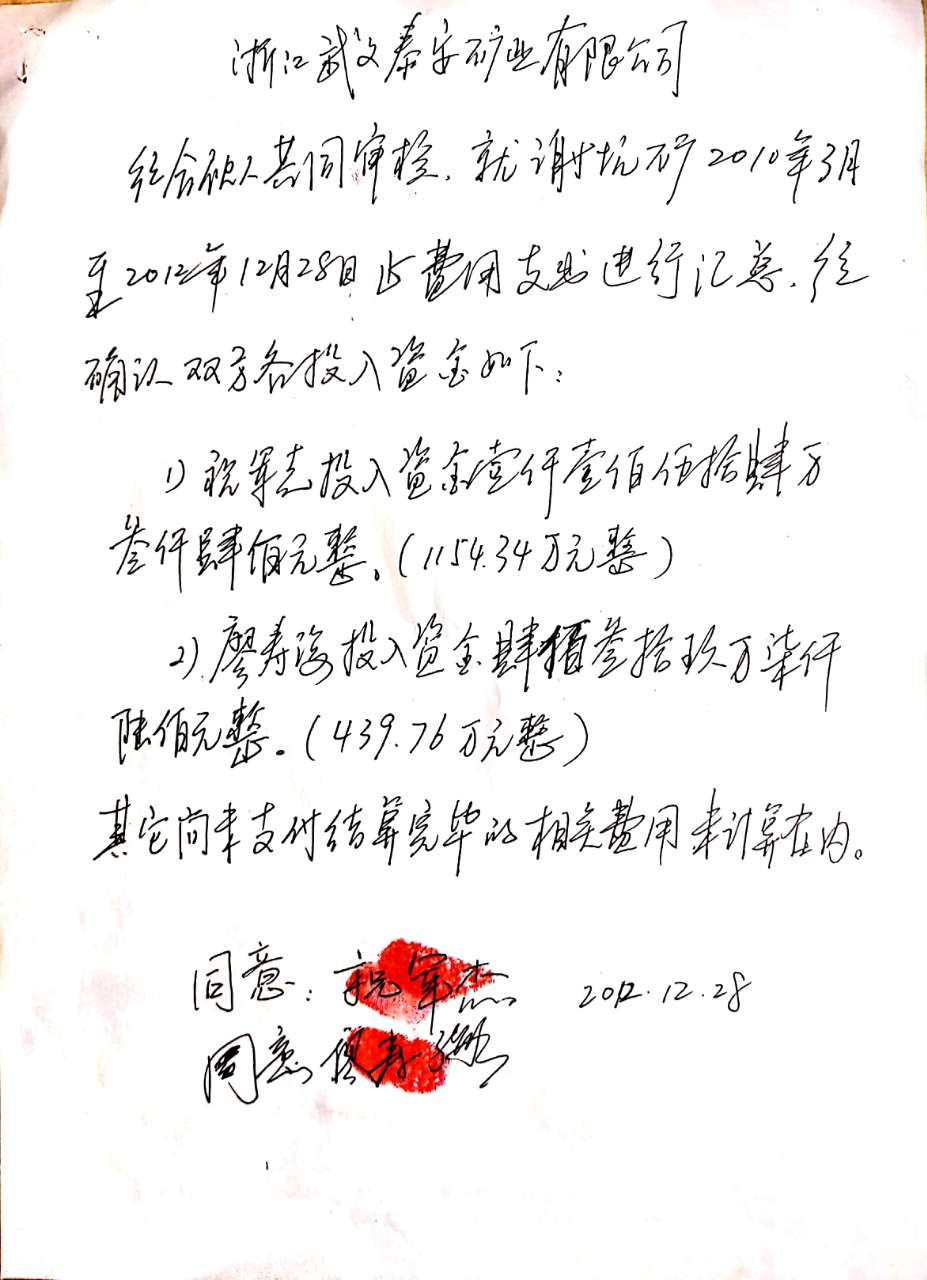 浙江武义泰安矿业有限公司
经合伙人共同审核，就谢坑矿2010年3月
至2012年12月28日止费用支出进行汇总，经
确认双方各投入资金如下：
1) 祝军志投入资金壹仟壹佰伍拾肆万
叁仟肆佰元整。(1154.34万元整)
2) 廖寿海投入资金肆佰叁拾玖万柒仟
陆佰元整。(439.76万元整)
其它尚未支付结算完毕的相关费用未计算在内。
同意：祝军杰 2012.12.28
同意 寿